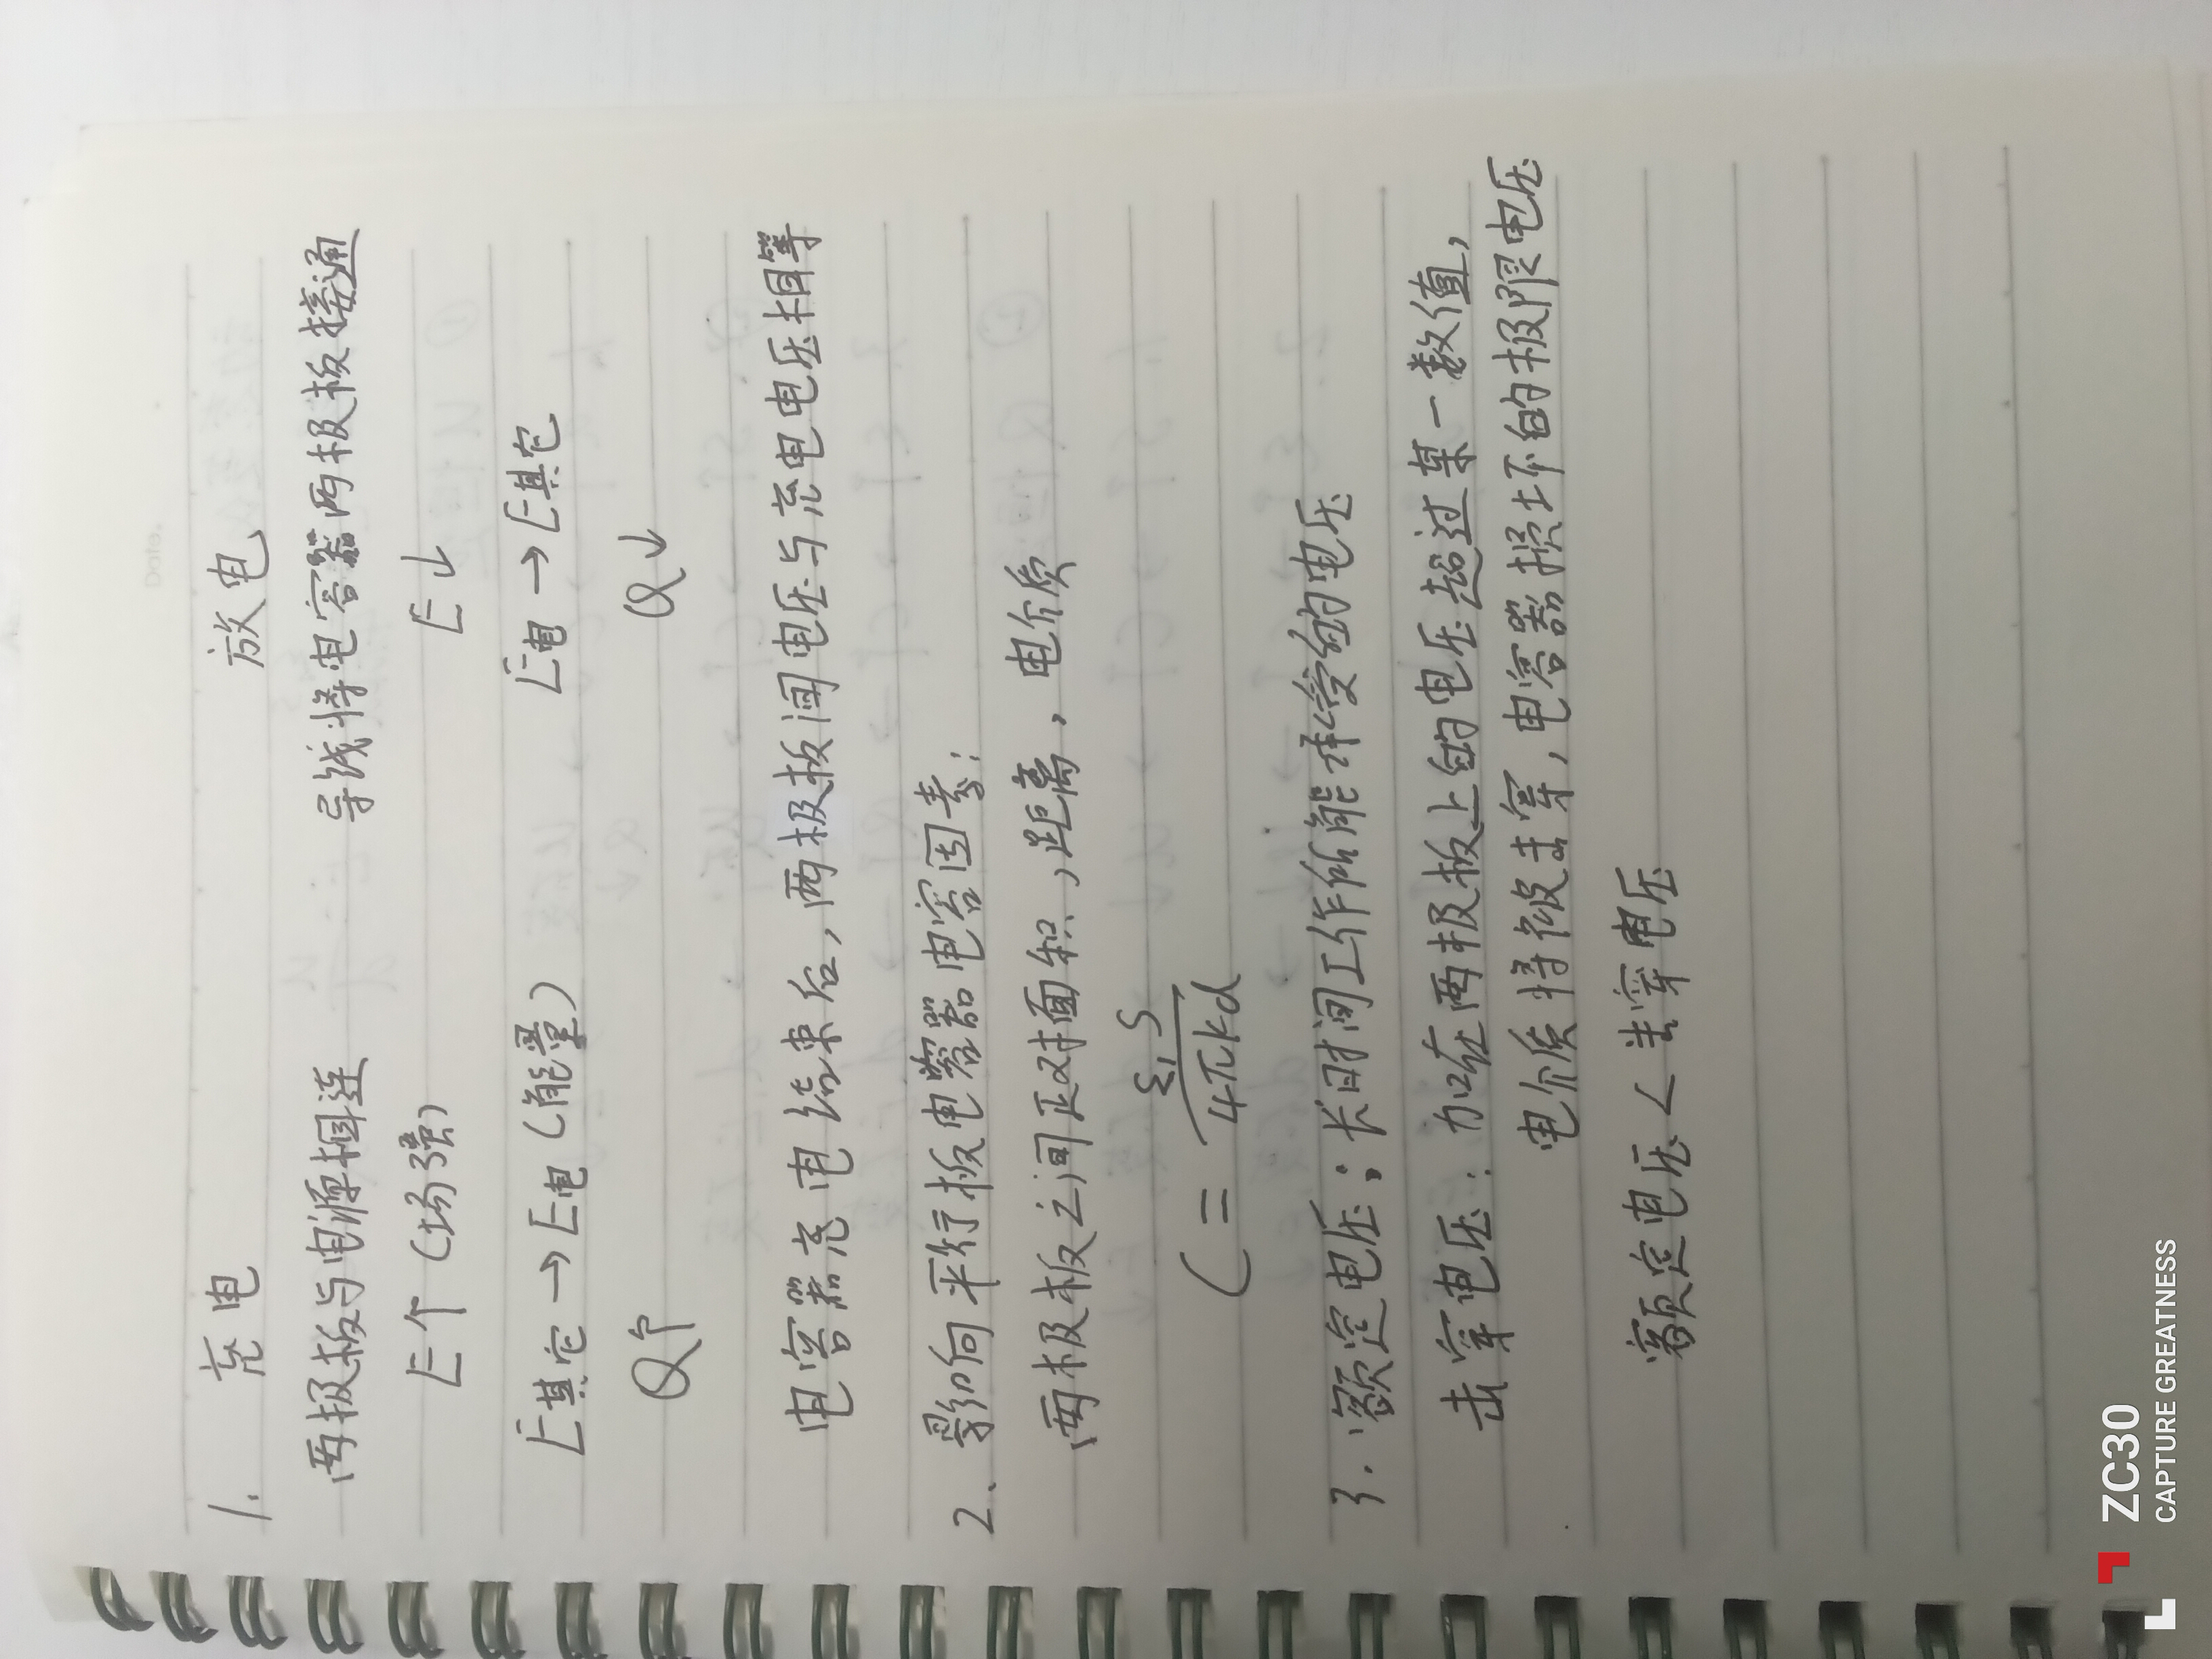 Date.
1. 充电 放电
两极板与电源相连 导线将电容器两极板接通
E↑(场强) E↓
E其它→E电(能量) E电→E其它
Q↑ Q↓
电容器充电结束后,两极板间电压与充电电压相等
2、影响平行板电容器电容因素:
两极板之间正对面积,距离,电介质
C = εrS/4πkd
3.额定电压:长时间工作所能承受的电压
击穿电压:加在两极板上的电压超过某一数值,
电介质将被击穿,电容器损坏的极限电压
额定电压<击穿电压
ZC30
CAPTURE GREATNESS